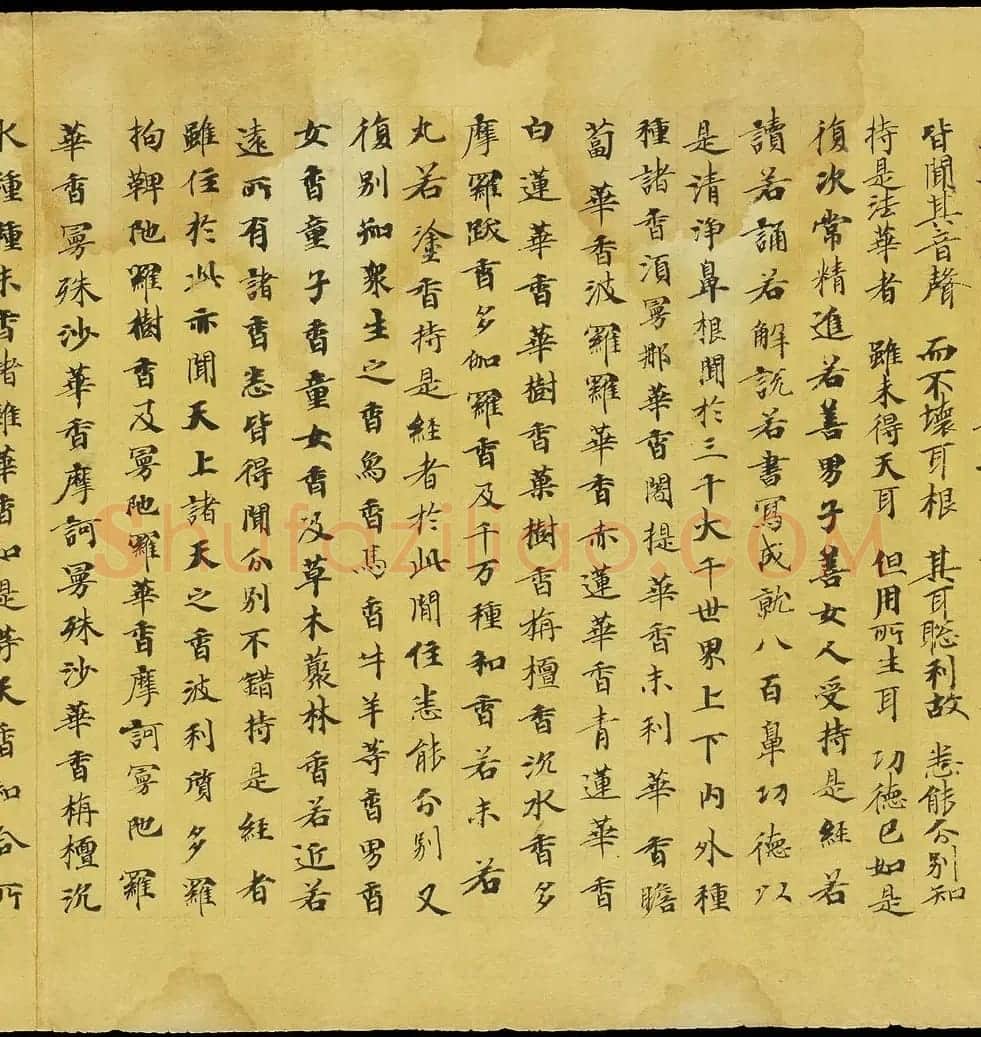 皆聞其音聲 而不壞耳根 其耳聡利故 悉能分別知
持是法華者 雖未得天耳 但用所生耳 功德已如是
復次常精進若善男子善女人受持是經若
讀若誦若解說若書寫成就八百鼻功德以
是清淨鼻根聞於三千大千世界上下內外種
種諸香須曼那華香闍提華香末利華香瞻
蔔華香波羅羅華香赤蓮華香青蓮華香
白蓮華香華樹香菓樹香栴檀香沉水香多
摩羅跋香多伽羅香及千万種和香若末若
丸若塗香持是經者於此間住悉能分別又
復別知眾生之香象香馬香牛羊等香男香
女香童子香童女香及草木藂林香若近若
遠所有諸香悉皆得聞分別不錯持是經者
雖住於此亦聞天上諸天之香波利質多羅
拘鞞陁羅樹香及曼陁羅華香摩訶曼陁羅
華香曼殊沙華香摩訶曼殊沙華香栴檀沉
水種種末香諸雜華香如是等天香和合所
Shufaziliao.com